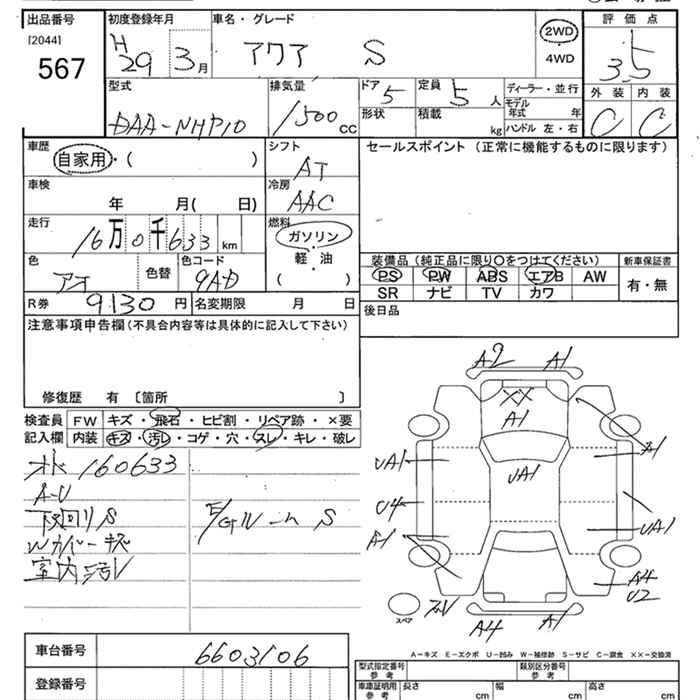 出品番号 初度登録年月 車名・グレード 評価点
[2044]
567
H29 3月 アクア S
2WD
・
4WD
3.5
型式 排気量 ドア 定員 ディーラー・並行 外装 内装
DAA-NHP10 1500cc 5 5人
モデル年式 年
C C
形状 積載 kg ハンドル 左・右
車歴 シフト セールスポイント (正常に機能するものに限ります)
自家用・( ) AT
車検 冷房
年 月( 日) AAC
走行 燃料
16万0千633km ガソリン
・
軽・油
( )
色 色替 色コード
アオ 9AD
装備品(純正品に限り○をつけてください) 新車保証書
PS PW ABS エアB AW 有・無
SR ナビ TV カワ
R券 9130円 名変期限 月 日 後日品
注意事項申告欄(不具合内容等は具体的に記入して下さい)
修復歴 有 〔箇所 〕
検査員 FW キズ・飛石・ヒビ割・リペア跡・×要
記入欄 内装 キズ・汚レ・コゲ・穴・スレ・キレ・破レ
160633
A-U
下回りS
Wカバーキズ
室内汚レ
A2 A1
XX
A1
A1
UA1 UA1
U4 UA1
A1
A4
U2
スペア
A4 A1
A-キズ E-エクボ U-凹み W-補修跡 S-サビ C-腐食 XX-交換済
車台番号 6603106
型式指定番号 類別区分番号
参考 参考
登録番号 車庫証明用 長さ 幅 高さ
参考 cm cm cm